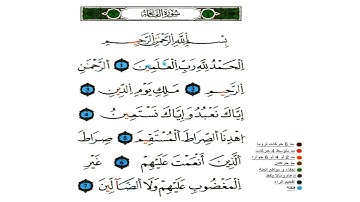 سُورَةُ الفَاتِحَةِ
بِسْمِ اللَّهِ الرَّحْمَٰنِ الرَّحِيمِ
الْحَمْدُ لِلَّهِ رَبِّ الْعَالَمِينَ 1 الرَّحْمَٰنِ
الرَّحِيمِ 2 مَالِكِ يَوْمِ الدِّينِ 3
إِيَّاكَ نَعْبُدُ وَإِيَّاكَ نَسْتَعِينُ 4
اهْدِنَا الصِّرَاطَ الْمُسْتَقِيمَ 5 صِرَاطَ
الَّذِينَ أَنْعَمْتَ عَلَيْهِمْ 6 غَيْرِ
الْمَغْضُوبِ عَلَيْهِمْ وَلَا الضَّالِّينَ 7